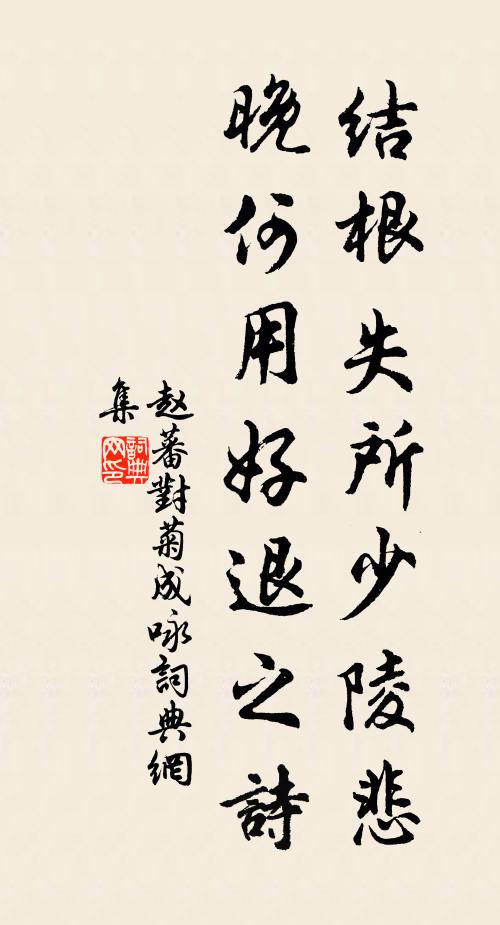 结根失所少陵悲
晚何用好退之詩
赵蕃對菊成咏詞典網
集
詞典網印